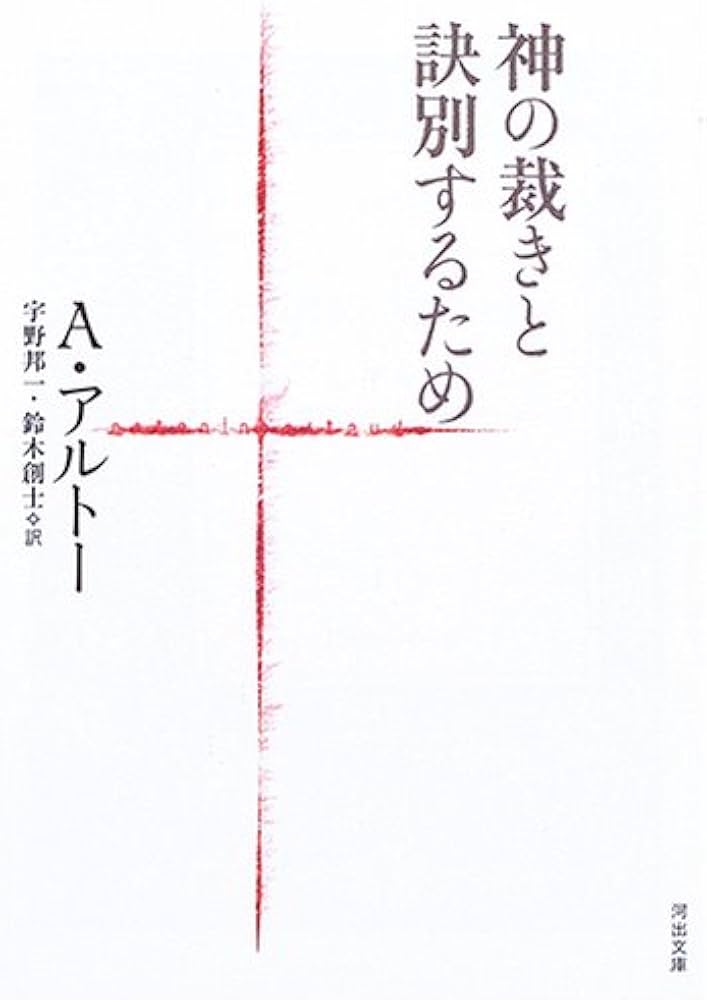 神の裁きと
訣別するため
A・アルトー
宇野邦一・鈴木創士◇訳
antonin artaud
河出文庫